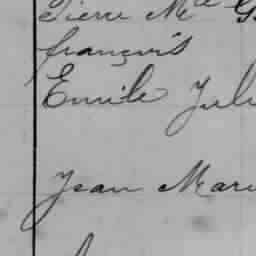 Pierre Mie G
françois
Emile Jul
Jean Mari